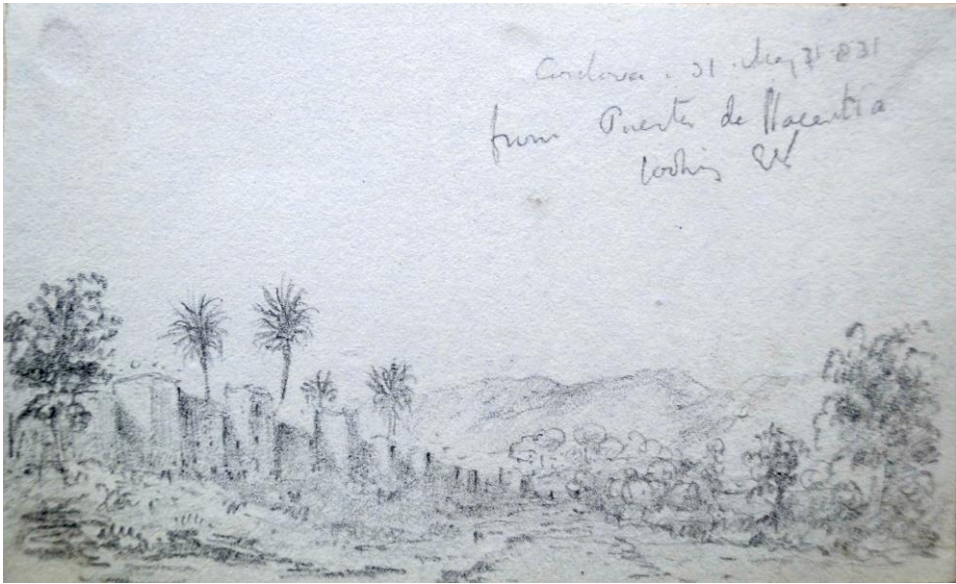 Cordova. 31. May 1831
from Puerta de Placentia
looking